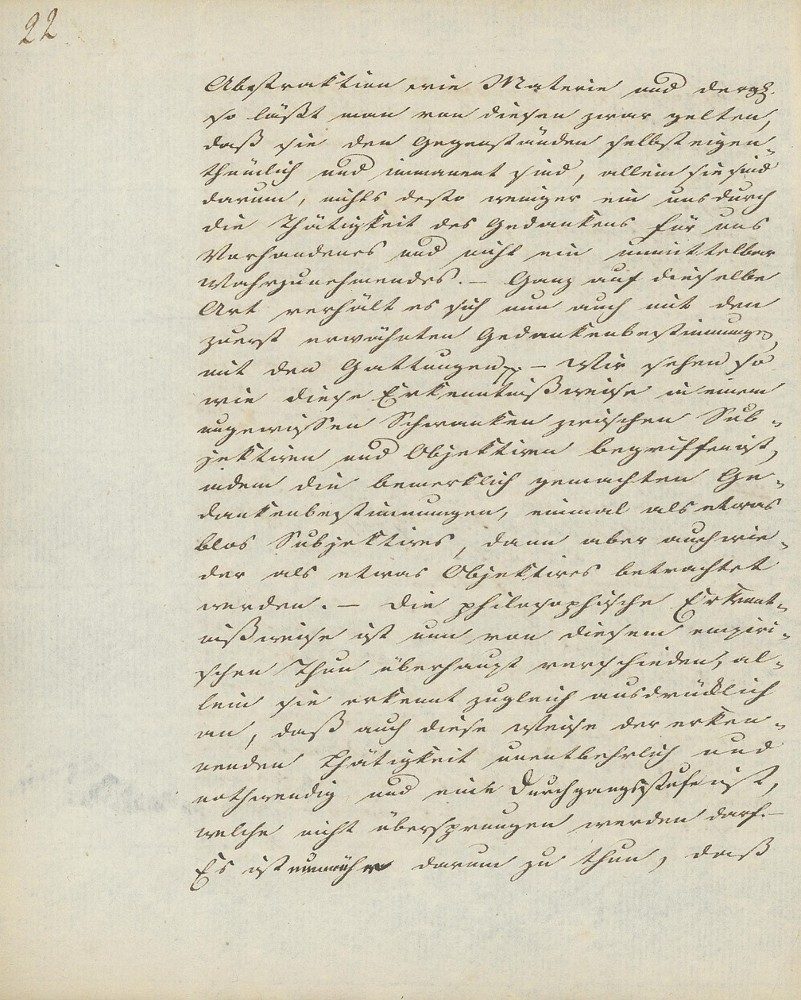 22
Abstraktion wie Materie und dergl.
so läßt man von diesen zwar gelten,
daß sie den Gegenständen selbst eigen-
thümlich und immanent sind, allein sie sind
darum, nichts desto weniger ein uns durch
die Thätigkeit des Gedankens für uns
Vorhandenes und nicht ein unmittelbar
Wahrzunehmendes. — Ganz auf dieselbe
Art verhält es sich nun auch mit den
zuerst erwähnten Gedankenbestimmungen,
mit den Gattungen — Wir sehen so
wie diese Erkenntnißweise in einem
ungewissen Schwanken zwischen Sub-
jektiven und Objektiven begriffen ist,
indem die bemerklich gemachten Ge-
dankenbestimmungen, einmal als etwas
blos Subjektives, dann aber auch wie-
der als etwas Objektives betrachtet
werden. — Die philosophische Erkennt-
nißweise ist nun von diesem empiri-
schen Thun überhaupt verschieden, al-
lein sie erkennt zugleich ausdrücklich
an, daß auch diese Weise der erken-
nenden Thätigkeit unentbehrlich und
nothwendig und eine Durchgangsstufe ist,
welche nicht übersprungen werden darf. —
Es ist nunmehr darum zu thun, daß